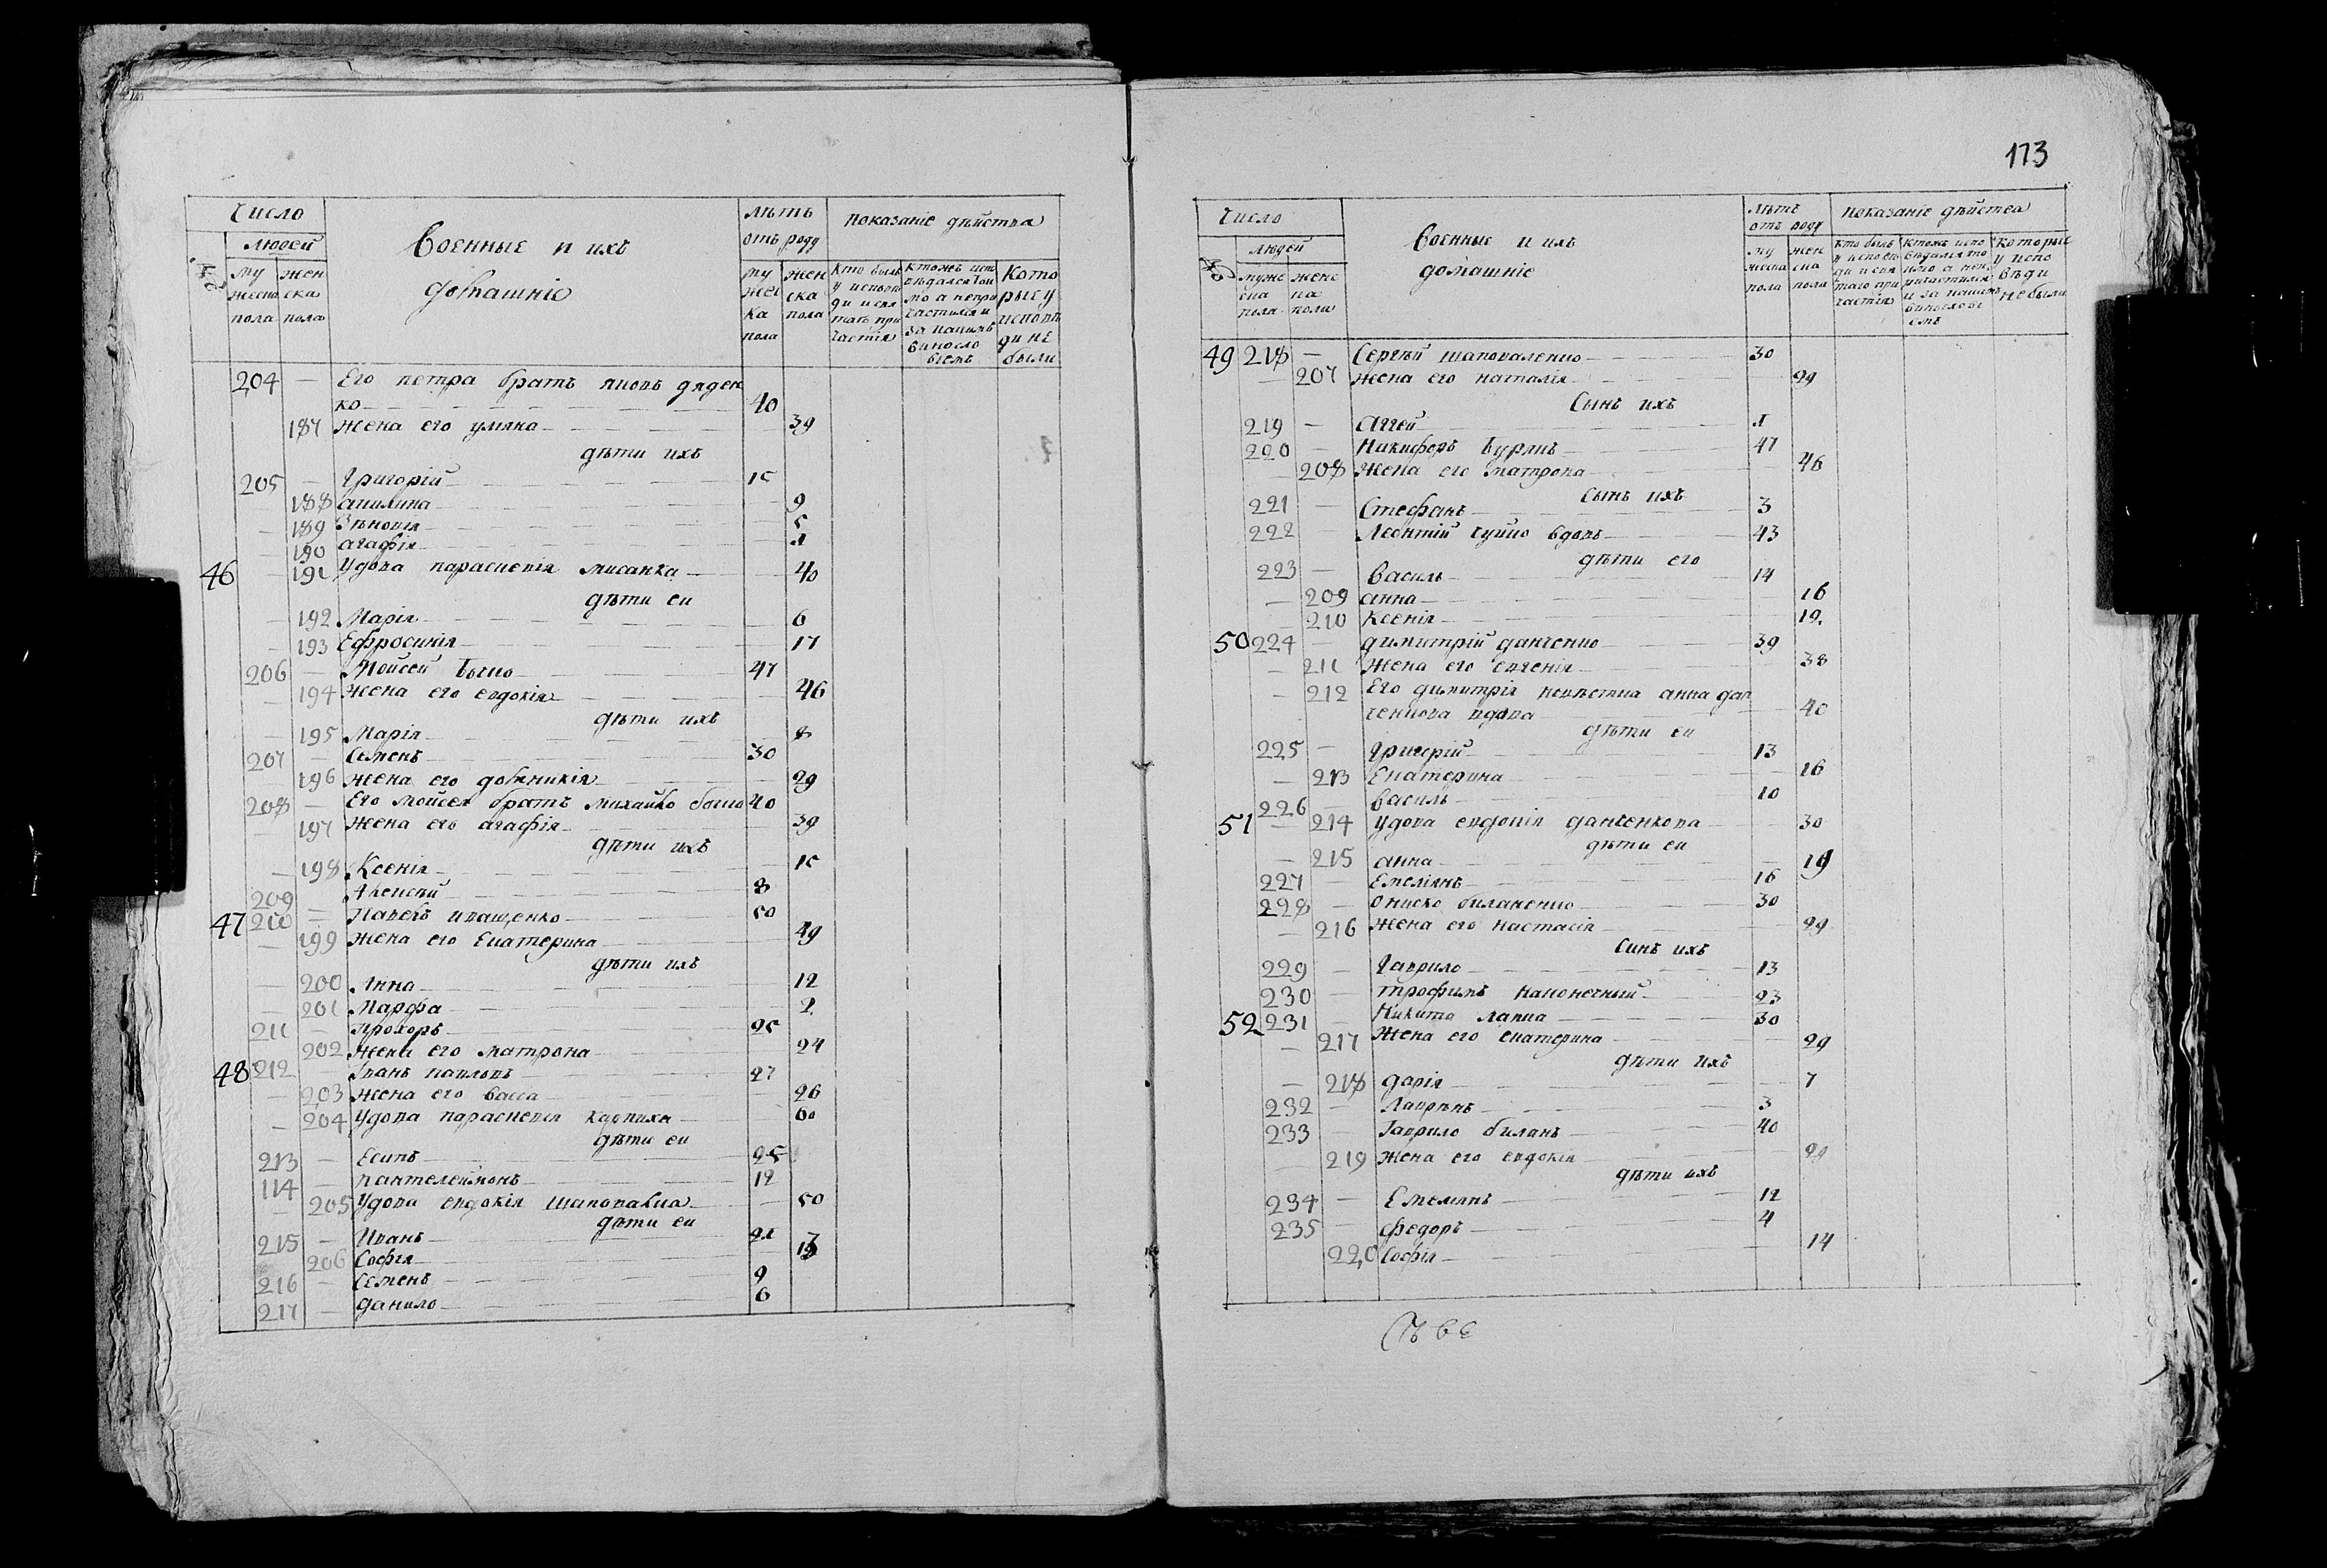 Число
людей
Военные и ихъ
домашніе
лѣтъ
отъ роду
показаніе дѣйства
му
жеска
пола
жен
ска
пола
му
жес
ка
пола
жен
ска
пола
Кто былъ
у исповѣ
ди и свя
таго при
частія
Которые
у исповѣ
ди не
были
204 — Его петра братъ яковъ дяден
ко 40
187 жена его уляна 39
дѣти ихъ
205 — Григорій 15
188 акилина 9
189 Зѣновія 5
190 агафія 1
46 — 191 Удова параскевія лисанка 40
дѣти еи
192 Марія 6
193 Ефросинія 17
206 — Мойсей 47
194 жена его евдокія 46
дѣти ихъ
195 Марія 8
207 — Семенъ 30
196 жена его домникія 29
208 — Его мойсея братъ михайло 40
197 жена его агафія 39
дѣти ихъ
198 Ксенія 15
209 — Алексѣй 8
47 210 — Павелъ иващенко 50
199 жена его Екатерина 49
дѣти ихъ
200 Анна 12
201 Марфа 2
211 — Прохоръ 25
202 жена его матрона 24
48 212 — Іванъ 27
203 жена его васса 26
204 Удова параскевія карпиха 60
дѣти еи
213 — Есипъ 25
114 — пантелеймонъ 12
205 Удова евдокія шаповалка 50
дѣти еи
215 — Иванъ 21
206 Софія
216 — Семенъ 9
217 — данило 6
173
Число
людей
Военные и ихъ
домашніе
лѣтъ
отъ роду
показаніе дѣйства
муже
ска
пола
женс
ка
пола
му
жеска
пола
жен
ска
пола
кто былъ
у исповѣ
ди и свя
таго при
частія
которые
у испо
вѣди
небыли
49 218 — Сергѣй шаповаленко 30
207 жена его наталія 29
Сынъ ихъ
219 — Аггей 1
220 — Никифоръ 47
208 Жена его матрона 46
сынъ ихъ
221 — Стефанъ 3
222 Леонтій чуйко вдовъ 43
дѣти его
223 — Василь 14
209 анна 16
210 Ксенія 12
50 224 — димитрій данченко 39
211 жена его евгенія 38
212 Его димитрія невѣстка анна дан
ченкова вдова 40
дѣти еи
225 — Григорій 13
213 Екатерина 16
226 — василь 10
51 — 214 Удова евдокія данченкова 30
дѣти еи
215 анна 19
227 — Емеліянъ 16
228 — Ониско биланенко 30
216 жена его настасія 29
Синъ ихъ
229 — Гаврило 13
230 — трофимъ наконечный 23
52 231 — Никита лапка 30
217 жена его екатерина 29
дѣти ихъ
218 дарія 7
232 — Лаврѣнъ 3
233 — Гаврило биланъ 40
219 жена его евдокія 29
дѣти ихъ
234 — Емелянъ 12
235 федоръ 4
220 Софія 14